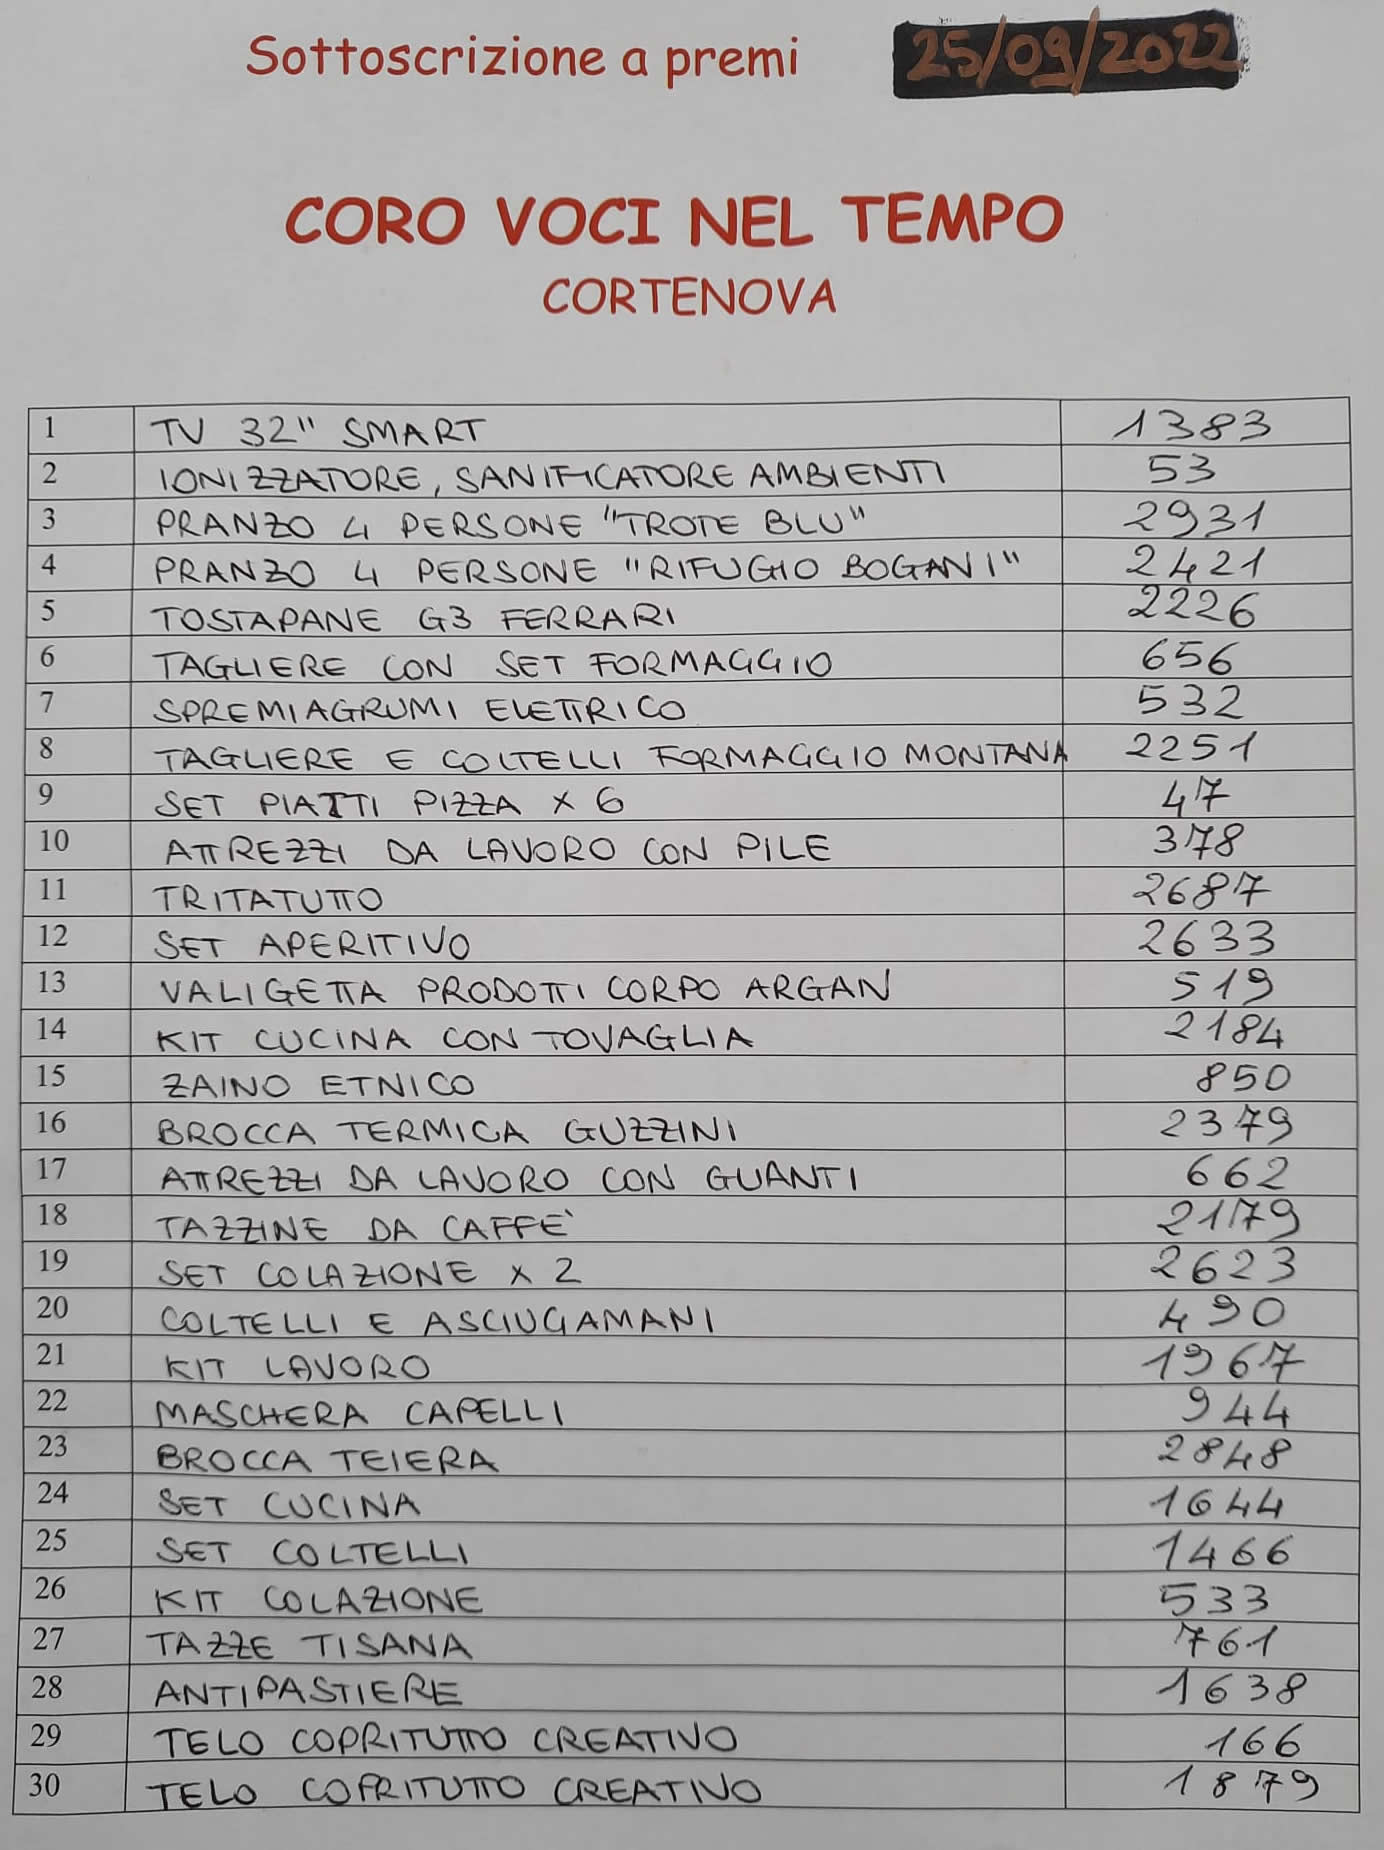 Sottoscrizione a premi 25/09/2022
CORO VOCI NEL TEMPO
CORTENOVA
1 TV 32" SMART 1383
2 IONIZZATORE, SANIFICATORE AMBIENTI 53
3 PRANZO 4 PERSONE "TROTE BLU" 2931
4 PRANZO 4 PERSONE "RIFUGIO BOGANI" 2421
5 TOSTAPANE G3 FERRARI 2226
6 TAGLIERE CON SET FORMAGGIO 656
7 SPREMIAGRUMI ELETTRICO 532
8 TAGLIERE E COLTELLI FORMAGGIO MONTANA 2251
9 SET PIATTI PIZZA X 6 47
10 ATTREZZI DA LAVORO CON PILE 378
11 TRITATUTTO 2687
12 SET APERITIVO 2633
13 VALIGETTA PRODOTTI CORPO ARGAN 519
14 KIT CUCINA CON TOVAGLIA 2184
15 ZAINO ETNICO 850
16 BROCCA TERMICA GUZZINI 2379
17 ATTREZZI DA LAVORO CON GUANTI 662
18 TAZZINE DA CAFFE' 2179
19 SET COLAZIONE X 2 2623
20 COLTELLI E ASCIUGAMANI 490
21 KIT LAVORO 1967
22 MASCHERA CAPELLI 944
23 BROCCA TEIERA 2848
24 SET CUCINA 1644
25 SET COLTELLI 1466
26 KIT COLAZIONE 533
27 TAZZE TISANA 761
28 ANTIPASTIERE 1638
29 TELO COPRITUTTO CREATIVO 166
30 TELO COPRITUTTO CREATIVO 1879